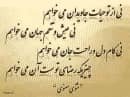 نی از تو حیات جاودان می خواهم
نی عیش و تنعم جهان می خواهم
نی کام دل و راحت جان می خواهم
چیزی که رضای توست آن می خواهم